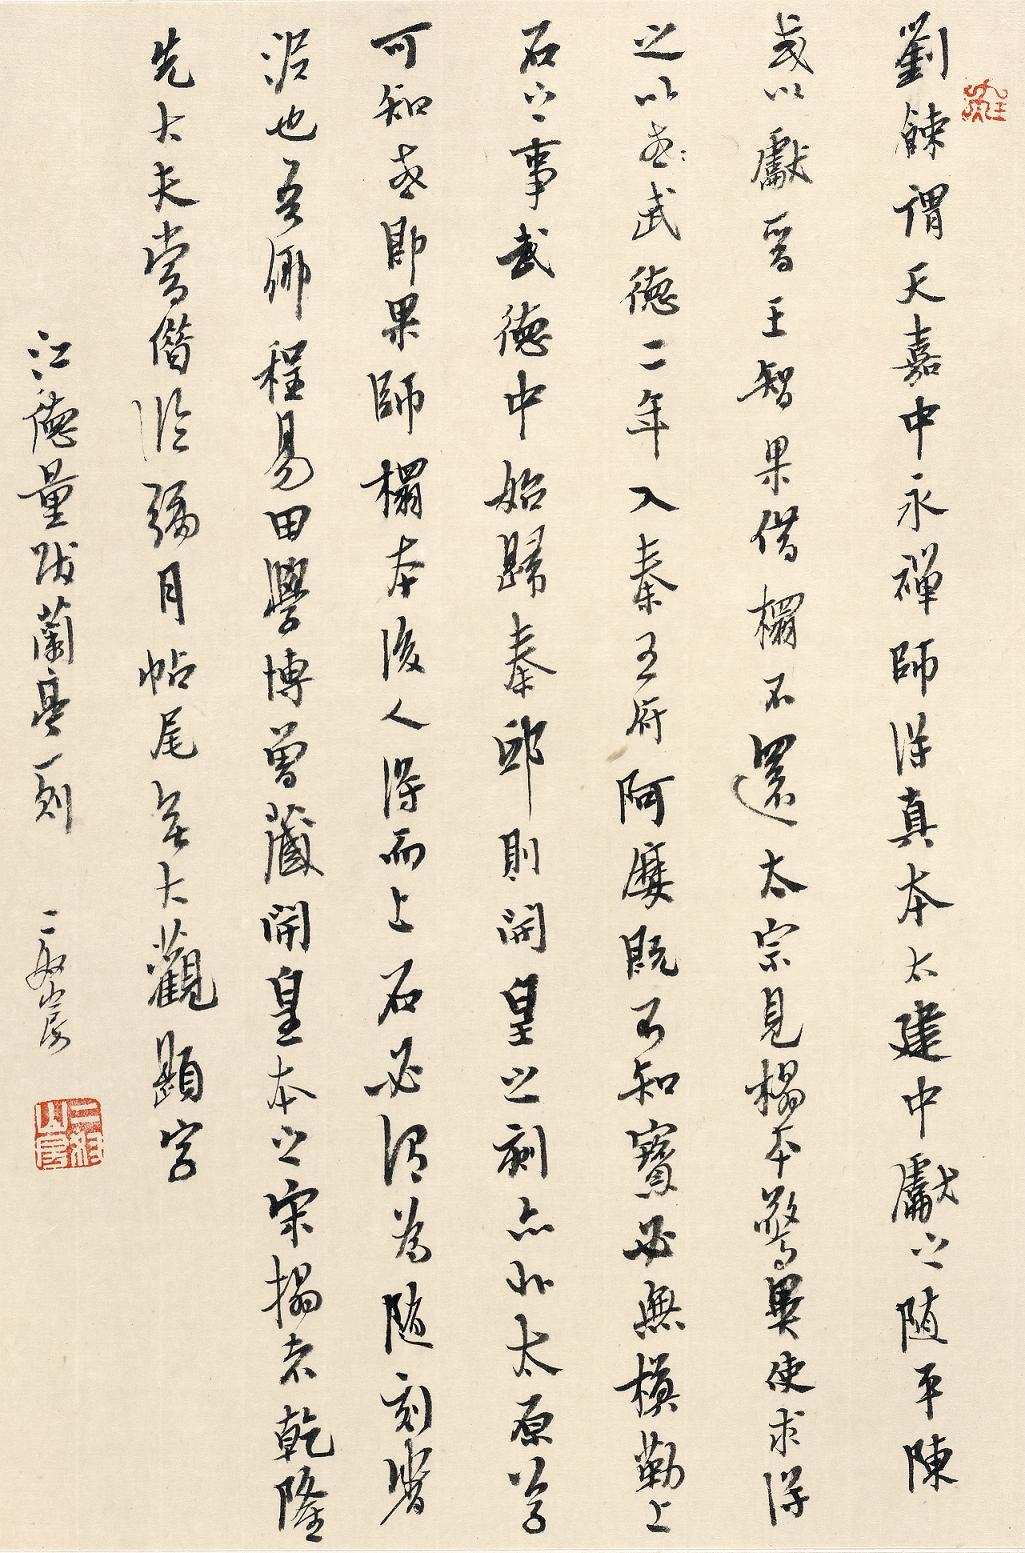 劉餗謂天嘉中永禪師得真本太建中獻之隨平陳
或以獻晉王智果借榻不還太宗見榻本驚異使求得
之以武德二年入秦王府阿㜷既不知寶必無模勒上
石之事武德中始歸秦邸則開皇之刻亦非太原草
可知者即果師榻本後人得而上石必謂為隨刻皆
泥也吾鄉程易田學博曾藏開皇本之宋搨者乾隆
先大夫嘗借臨彌月帖尾無大觀題字
江德量跋蘭亭一則